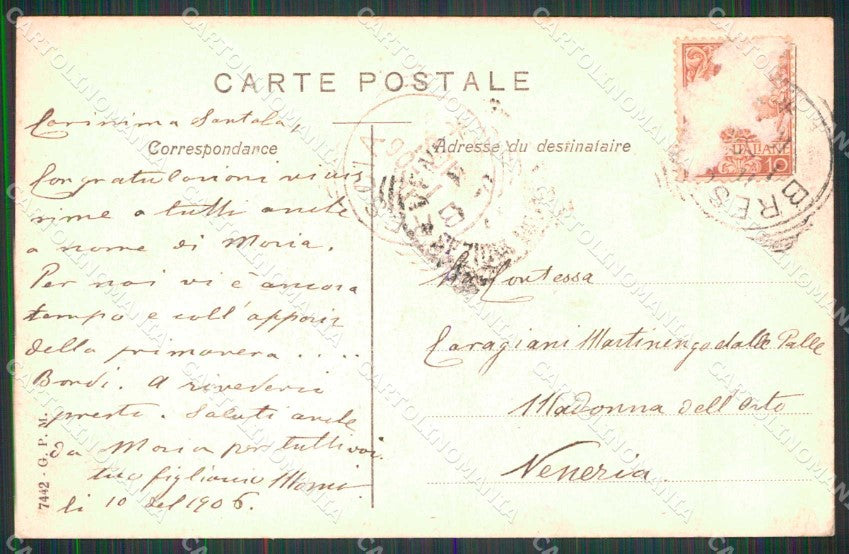 CARTE POSTALE
Carissima Santola,
Correspondance
Congratulazioni vivis
sime a tutti anche
a nome di Maria.
Per noi vi è ancora
tempo e coll'apparir
della primavera ....
Bondì. A rivederci
presto. Saluti anche
da Maria per tutti voi.
tuo figlioccio
li 10 del 1906.
7442 - G. P. M.
Adresse du destinataire
Contessa
Caragiani Martinengo dalle Palle
Madonna dell'Orto
Venezia.
ITALIANE
10
BRES
CARTOLINOMANIA